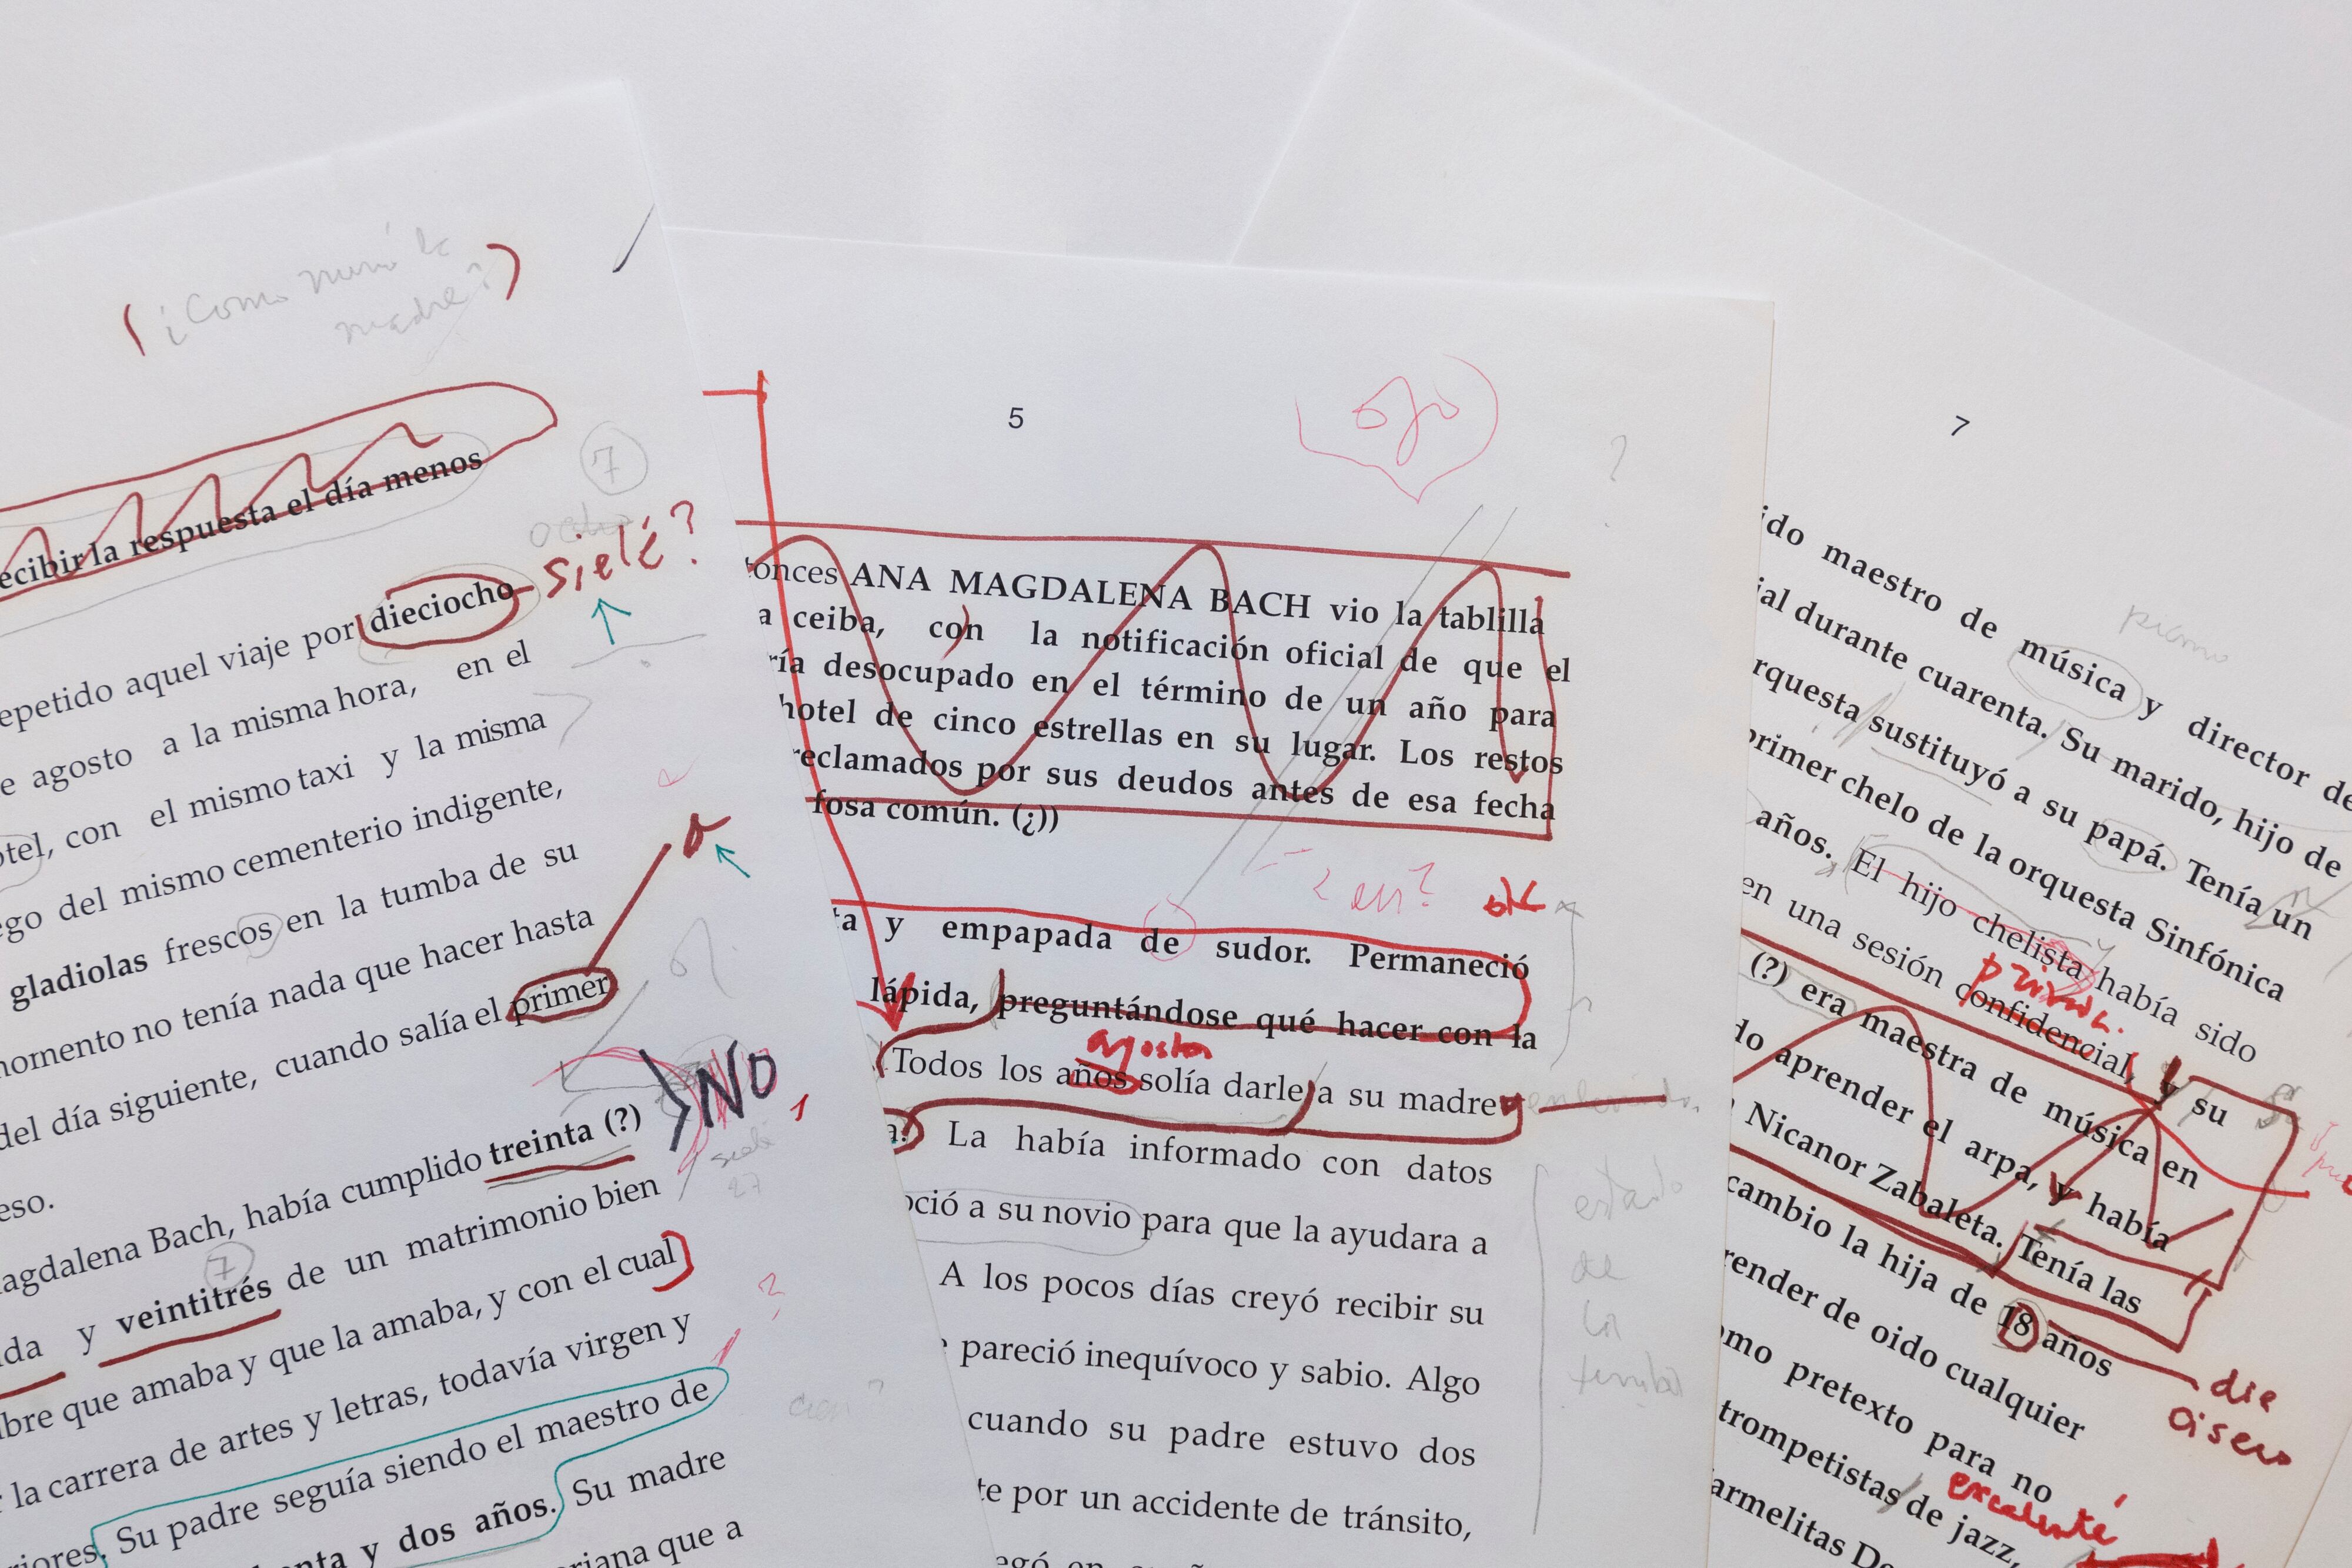 ¿Como murió la
madre?
ecibir la respuesta el día menos
7
ocho
siete?
epetido aquel viaje por dieciocho
e agosto a la misma hora, en el
otel, con el mismo taxi y la misma
ego del mismo cementerio indigente,
gladiolas frescos en la tumba de su
a
momento no tenía nada que hacer hasta
del día siguiente, cuando salía el primer
eso.
NO
siete
27
agdalena Bach, había cumplido treinta (?)
7
da y veintitrés de un matrimonio bien
bre que amaba y que la amaba, y con el cual
r la carrera de artes y letras, todavía virgen y
riores. Su padre seguía siendo el maestro de
enta y dos años. Su madre
riana que a
5
ojo
?
tonces ANA MAGDALENA BACH vio la tablilla
a ceiba, con la notificación oficial de que el
ría desocupado en el término de un año para
hotel de cinco estrellas en su lugar. Los restos
reclamados por sus deudos antes de esa fecha
fosa común. (¿))
¿en? ok
ta y empapada de sudor. Permaneció
lápida, preguntándose qué hacer con la
agosto
Todos los años solía darle a su madre
enterrada
a. La había informado con datos
oció a su novio para que la ayudara a
A los pocos días creyó recibir su
pareció inequívoco y sabio. Algo
cuando su padre estuvo dos
te por un accidente de tránsito,
egó en
estado
de
la
tumba
7
ido maestro de música y director de
piano
ial durante cuarenta. Su marido, hijo de
rquesta sustituyó a su papá. Tenía un
primer chelo de la orquesta Sinfónica
años. El hijo chelista había sido
en una sesión confidencial, y su
(?) era maestra de música en
do aprender el arpa, y había
Nicanor Zabaleta. Tenía las
cambio la hija de 18 años
die
render de oido cualquier
omo pretexto para no
trompetistas de jazz,
excelente
armelitas De